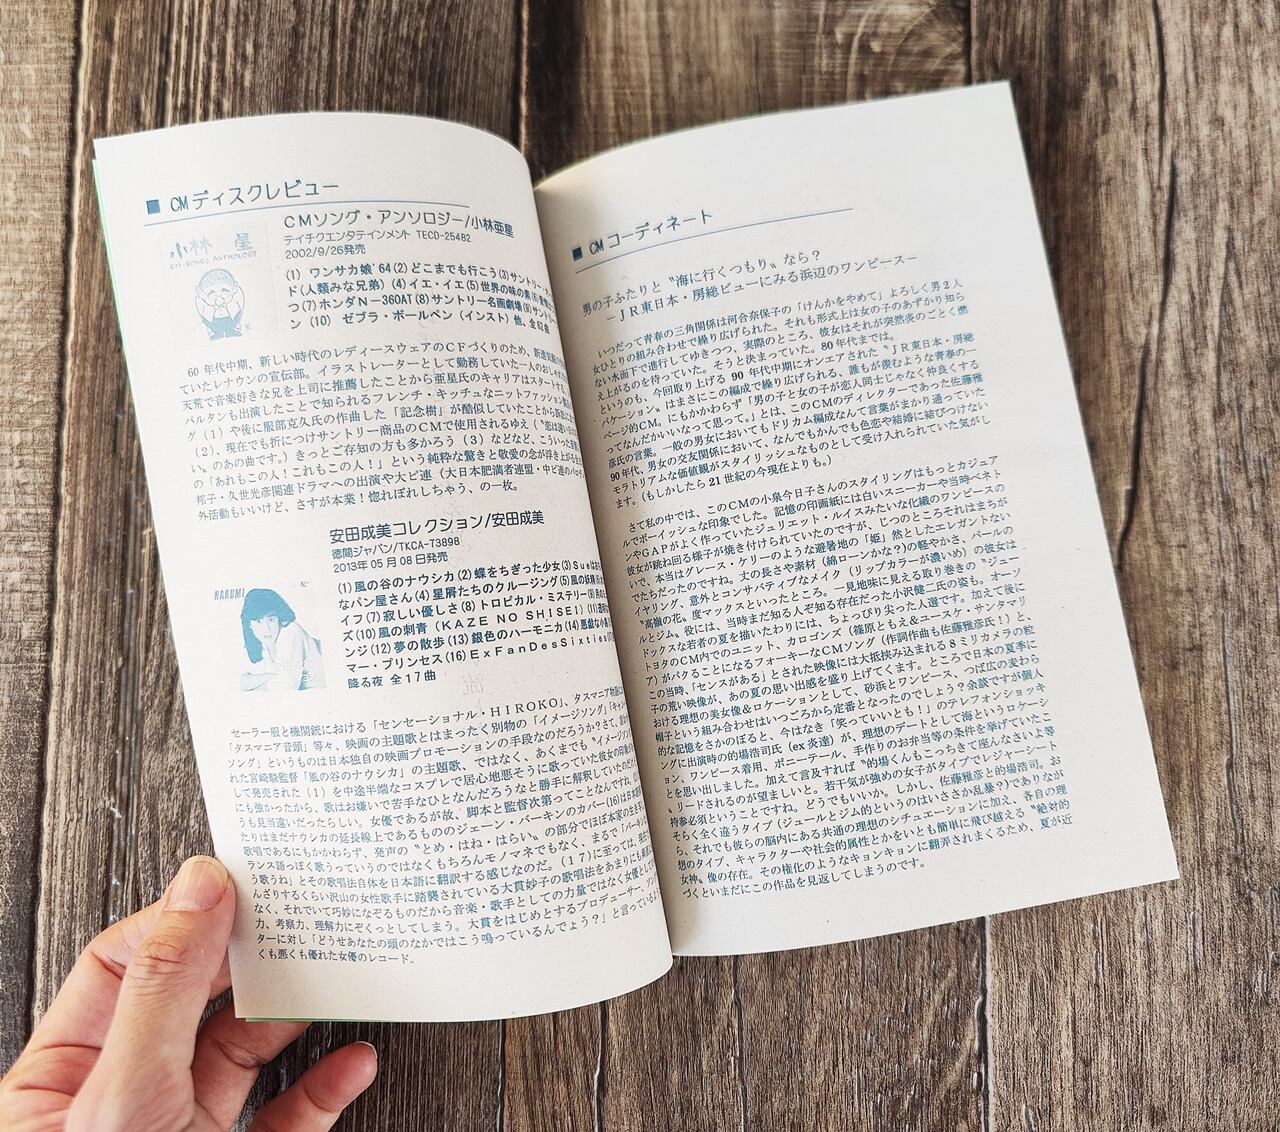 ■ CMディスクレビュー
小林 星
CM-SONGS ANTHOLOGY
CMソング・アンソロジー/小林亜星
テイチクエンタテインメント TECD-25482
2002/9/26発売
(1) ワンサカ娘'64(2)どこまでも行こう(3)サントリー
ド(人類みな兄弟)(4)イエ・イエ(5)世界の味の素(6)
つ(7)ホンダN-360AT(8)サントリー名画劇場(9)サン
ン(10) ゼブラ・ボールペン(インスト)他、全62曲
60年代中期、新しい時代のレディースウェアのCFづくりのため、新進
ていたレナウンの宣伝部。イラストレーターとして勤務していた一人のおし
天荒で音楽好きな兄を上司に推薦したことから亜星氏のキャリアはスタート
バルタンも出演したことで知られるフレンチ・キッチュなニットファッション
グ(1)や後に服部克久氏の作曲した「記念樹」が酷似していたことから訴訟に
(2)、現在でも折につけサントリー商品のCMで使用されるゆえ(〝恋は遠い
い〟のあの曲です。)きっとご存知の方も多かろう(3)などなど、こういった
の「あれもこの人!これもこの人!」という純粋な驚きと敬愛の念が浮き上が
邦子・久世光彦関連ドラマへの出演や大ピ連(大日本肥満者連盟・中ピ連のパロディ
外活動もいいけど、さすが本業!惚れぼれしちゃう、の一枚。
安田成美コレクション/安田成美
徳間ジャパン/TKCA-73898
2013年05月08日発売
NARUMI
(1)風の谷のナウシカ(2)蝶をちぎった少女(3)Sueは
なパン屋さん(4)星屑たちのクルージング(5)風の妖精
イフ(7)寂しい優しさ(8)トロピカル・ミステリー(9)
ズ(10)風の刺青(KAZE NO SHISEI)(11)
ンジ(12)夢の散歩(13)銀色のハーモニカ(14)悪戯な
マー・プリンセス(16)ExFanDesSixties
降る夜 全17曲
セーラー服と機関銃における「センセーショナル・HIROKO」、タスマニア物語に
「タスマニア音頭」等々、映画の主題歌とはまったく別物の「イメージソング」
ソング」というものは日本独自の映画プロモーションの手段なのだろうか?さて、
れた宮崎駿監督「風の谷のナウシカ」の主題歌、ではなく、あくまでも〝イメージソング
して発売された(1)を中途半端なコスプレで居心地悪そうに歌っていた彼女の印象が
にも強かったから、歌はお嫌いで苦手なひとなんだろうなと勝手に解釈していたのだ
うも見当違いだったらしい。女優であるが故、脚本と監督次第ってことなんですね。
たりはまだナウシカの延長線上であるもののジェーン・バーキンのカバー(16)は
歌唱であるにもかかわらず、発声の〝とめ・はね・はらい〟の部分でほぼ本家の生き写し
ランス語っぽく歌うっていうのではなくもちろんモノマネでもなく、まるで「バーキン
う歌うね」とその歌唱法自体を日本語に翻訳する感じなのだ。(17)に至っては、
んざりするくらい沢山の女性歌手に踏襲されている大貫妙子の歌唱法をあまりにも
なく、それでいて巧妙になぞるものだから音楽・歌手としての力量ではなく女優として
力、考察力、理解力にぞくっとしてしまう。大貫をはじめとするプロデューサー、アレン
ターに対し「どうせあなたの頭のなかではこう鳴っているんでょう?」と言っている
くも悪くも優れた女優のレコード。
■ CMコーディネート
男の子ふたりと〝海に行くつもり〟なら?
－JR東日本・房総ビューにみる浜辺のワンピース－
いつだって青春の三角関係は河合奈保子の「けんかをやめて」よろしく男2人
女ひとりの組み合わせで繰り広げられた。それも形式上は女の子のあずかり知ら
ない水面下で進行してゆきつつ、実際のところ、彼女はそれが突然炎のごとく燃
え上がるのを待っていた。そうと決まっていた。80年代までは。
というのも、今回取り上げる90年代中期にオンエアされた〝JR東日本・房総
バケーション〟はまさにこの編成で繰り広げられる、誰もが羨むような青春の一
ページ的CM。にもかかわらず「男の子と女の子が恋人同士じゃなく仲良くする
ってなんだかいいなって思って。」とは、このCMのディレクターであった佐藤雅
彦氏の言葉。一般の男女においてもドリカム編成なんて言葉がまかり通っていた
90年代、男女の交友関係において、なんでもかんでも色恋や結婚に結びつけない
モラトリアムな価値観がスタイリッシュなものとして受け入れられていた気がし
ます。(もしかしたら21世紀の今現在よりも。)
さて私の中では、このCMの小泉今日子さんのスタイリングはもっとカジュア
ルでボーイッシュな印象でした。記憶の印画紙には白いスニーカーや当時ベネト
ンやGAPがよく作っていたジュリエット・ルイスみたいな化繊のワンピースの
彼女が跳ね回る様子が焼き付けられていたのですが、じつのところそれはまちが
いで、本当はグレース・ケリーのような避暑地の「姫」然としたエレガントない
でたちだったのですね。丈の長さや素材(綿ローンかな?)の軽やかさ、パールの
イヤリング、意外とコンサバティブなメイク(リップカラーが濃いめ)の彼女は
〝高嶺の花〟度マックスといったところ。一見地味に見える取り巻きの〝ジュー
ルとジム〟役には、当時まだ知る人ぞ知る存在だった小沢健二氏の姿も。オーソ
ドックスな若者の夏を描いたわりには、ちょっぴり尖った人選です。加えて後に
トヨタのCM内でのユニット、カロゴンズ(篠原ともえ&ユースケ・サンタマリ
ア)がパクることになるフォーキーなCMソング(作詞作曲も佐藤雅彦氏!)と、
この当時、「センスがある」とされた映像には大抵挟み込まれる8ミリカメラの粒
子の荒い映像が、あの夏の思い出感を盛り上げてくます。ところで日本の夏季に
おける理想の美女像&ロケーションとして、砂浜とワンピース、つば広の麦わら
帽子という組み合わせはいつごろから定番となったのでしょう?余談ですが個人
的な記憶をさかのぼると、今はなき「笑っていいとも!」のテレフォンショッキ
ングに出演時の的場浩司氏(ex炎達)が、理想のデートとして海というロケーシ
ョン、ワンピース着用、ポニーテール、手作りのお弁当等の条件を挙げていたこ
とを思い出しました。加えて言及すれば〝的場くんもこっちきて座んなさいよ等
〟リードされるのが望ましいと。若干気が強めの女子がタイプでレジャーシート
持参必須ということですね。どうでもいいか。しかし、佐藤雅彦と的場浩司。お
そらく全く違うタイプ(ジュールとジム的というのはいささか乱暴?)でありなが
ら、それでも彼らの脳内にある共通の理想のシチュエーションに加え、各自の理
想のタイプ、キャラクターや社会的属性とかをいとも簡単に飛び越える〝絶対的
女神〟像の存在。その権化のようなキョンキョンに翻弄されまくるため、夏が近
づくといまだにこの作品を見返してしまうのです。